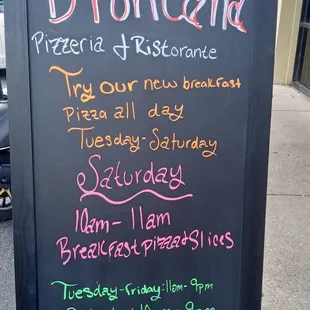 Pizzeria & Ristorante
Try our new breakfast
Pizza all day
Tuesday-Saturday
Saturday
10am-11am
Breakfast pizza & Slices
Tuesday-Friday: 11am-9pm